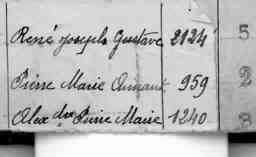 René Joseph Gustave 2124 5
Pierre Marie Aimant 959 2
Alexdre Pierre Marie 1240 3